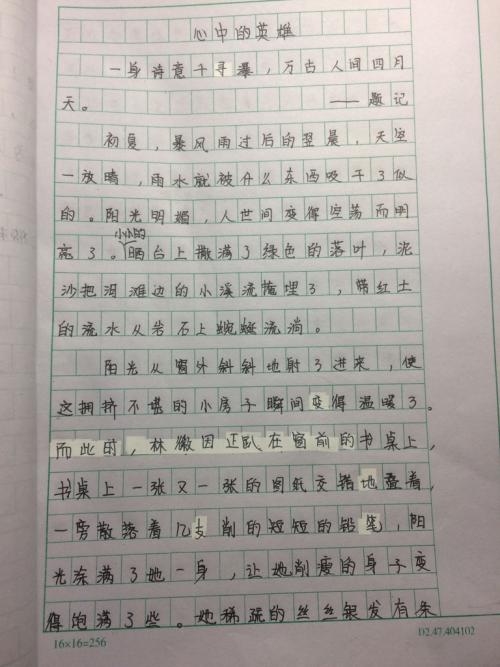 心中的英雄
一身诗意千寻瀑，万古人间四月
天。 ——题记
初夏，暴风雨过后的翌晨，天空
一放晴，雨水就被什么东西吸干了似
的。阳光明媚，人世间变得空荡而明
亮了。小小的晒台上撒满了绿色的落叶，泥
沙把河滩边的小溪流掩埋了，带红土
的流水从岩石上蜿蜒流淌。
阳光从窗外斜斜地射了进来，使
这拥挤不堪的小房子瞬间变得温暖了。
而此时，林徽因正趴在窗前的书桌上，
书桌上一张又一张的图纸交错地叠着，
一旁散落着几支削的短短的铅笔，阳
光涂满了她一身，让她削瘦的身子变
得饱满了些。她稀疏的丝丝银发有朱
16×16=256 D2.47.404102